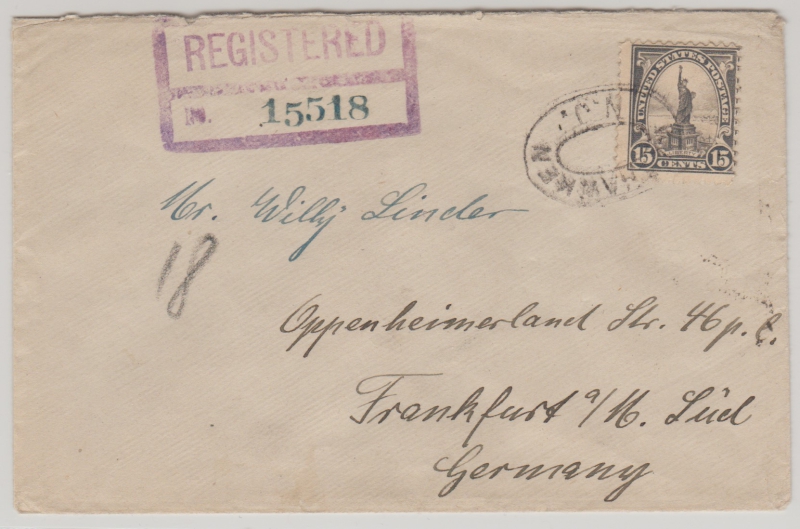 REGISTERED
No. 15518
UNITED STATES POSTAGE
LIBERTY
15 CENTS 15
HAWKEN N.J.
Mr. Willy Linder
18
Oppenheimerland Str. 46 p.
Frankfurt a/M. Süd
Germany